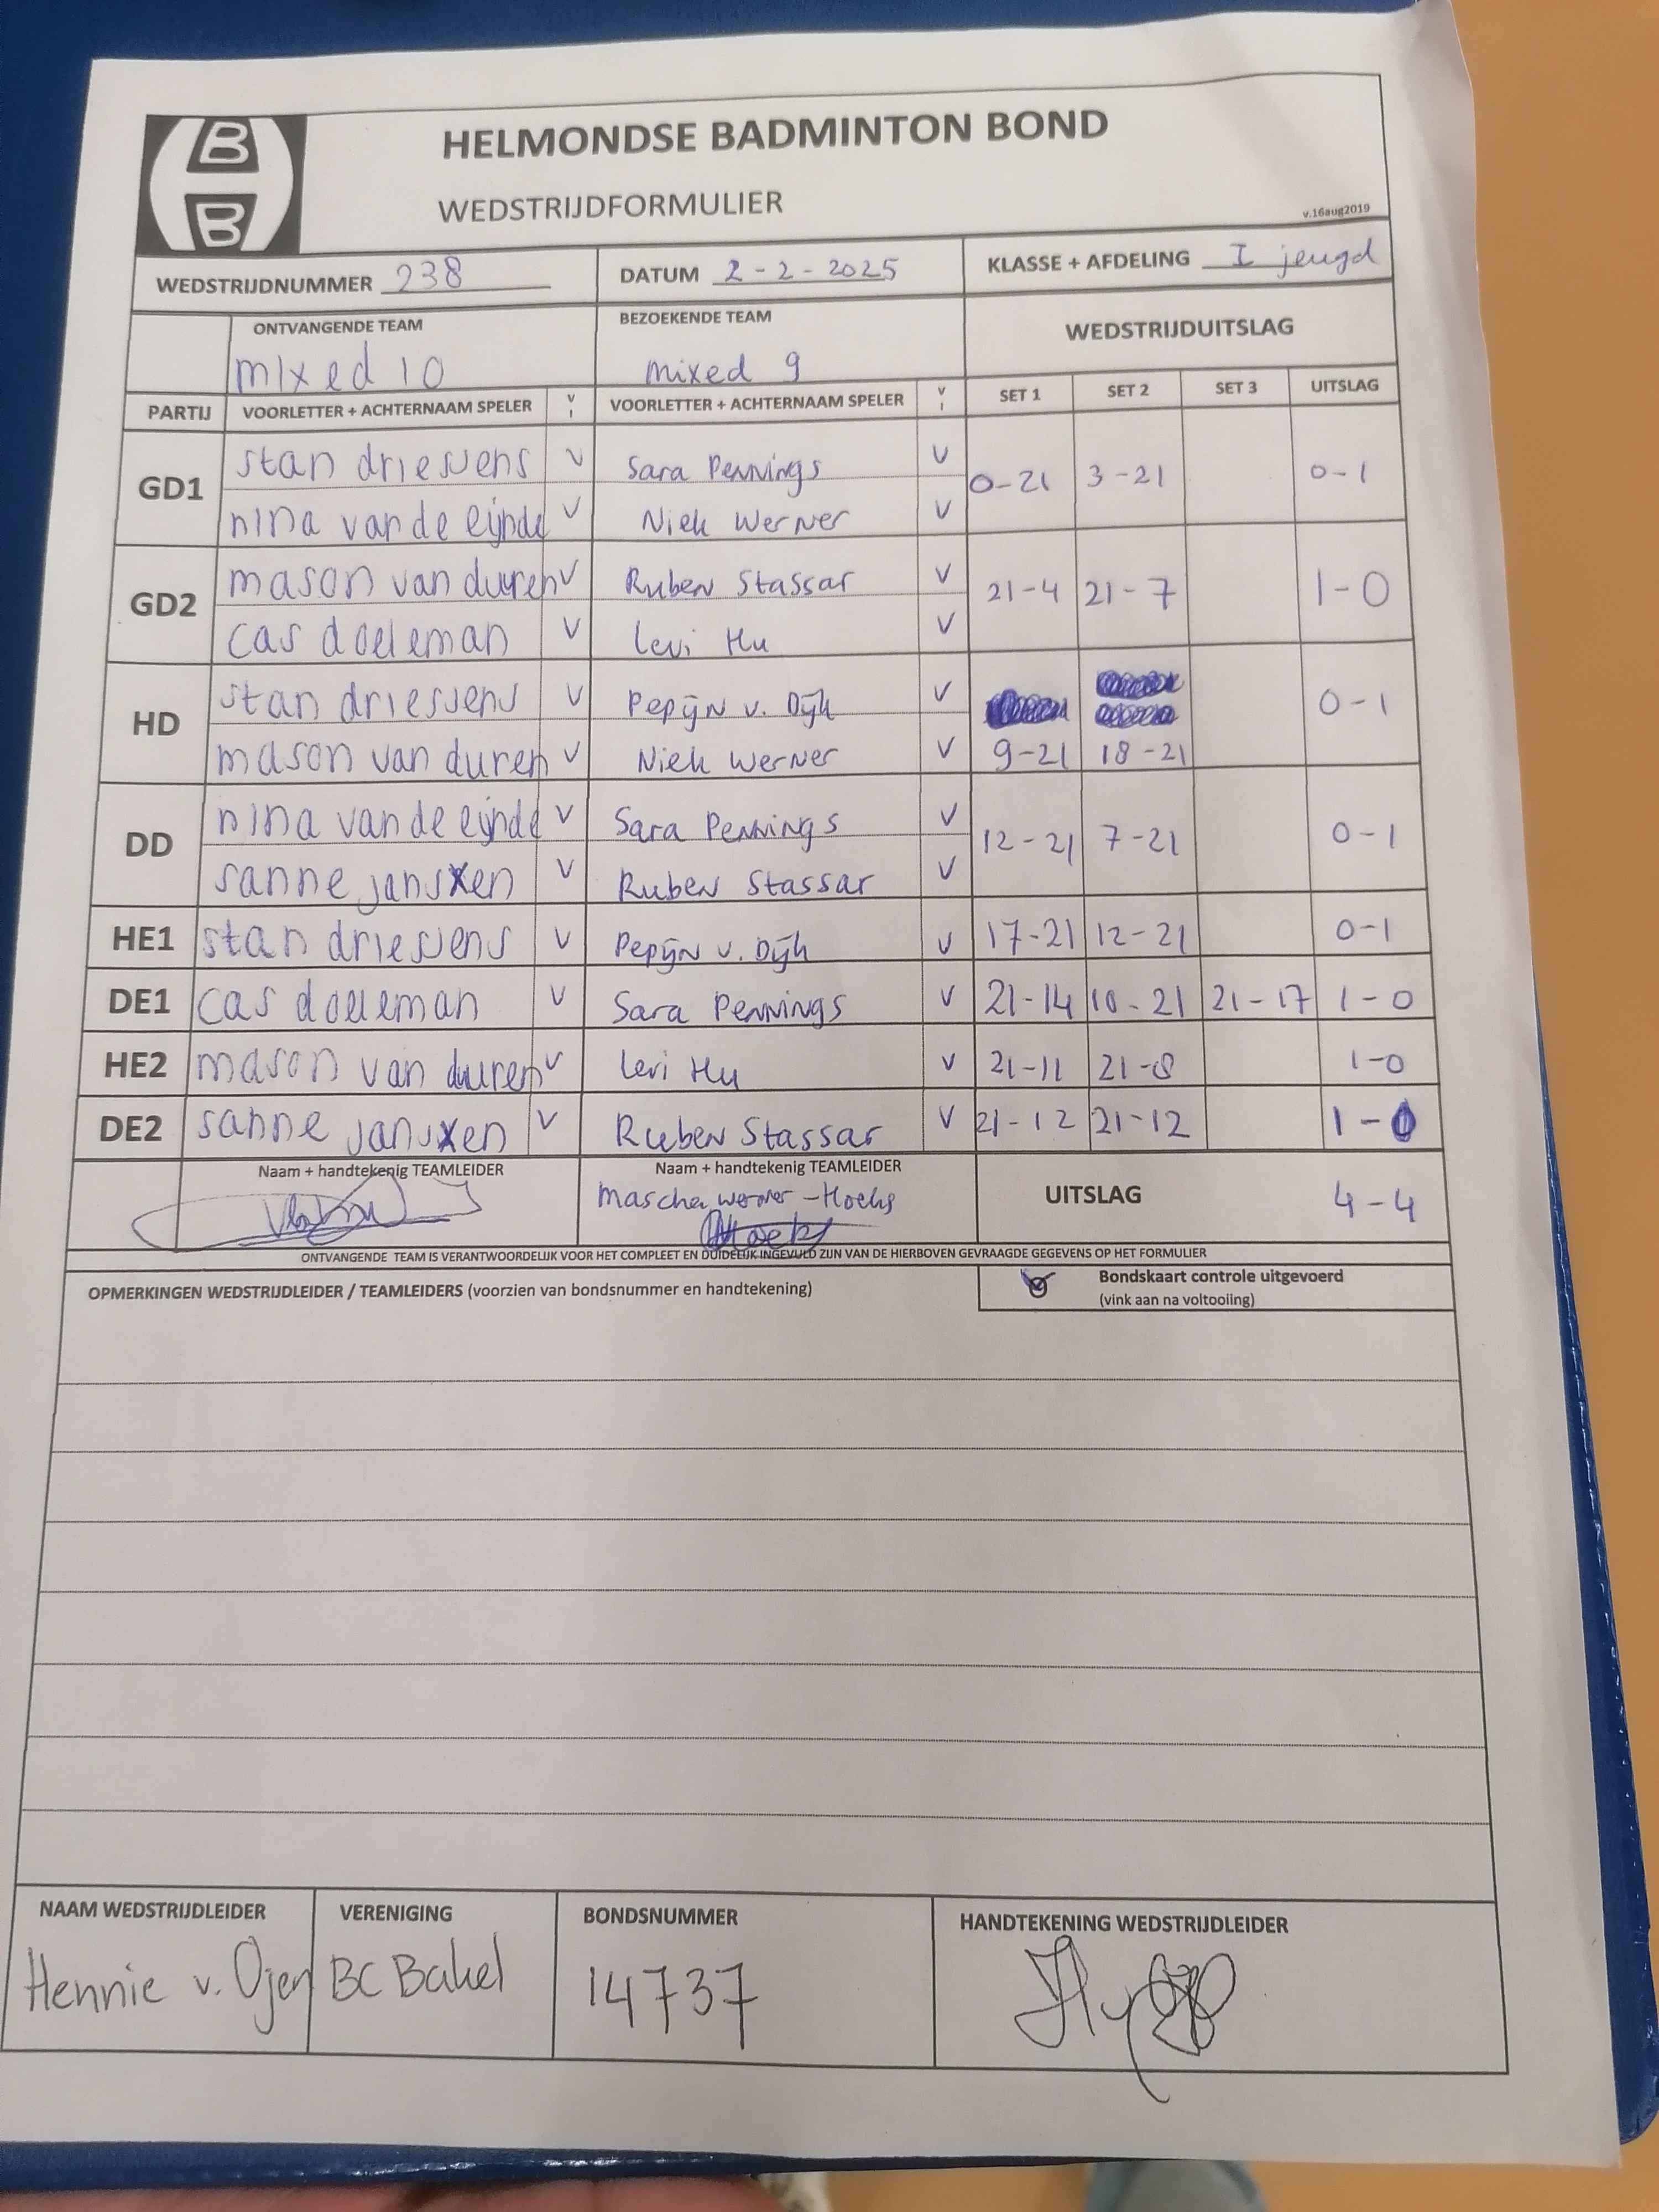 B
B
HELMONDSE BADMINTON BOND
WEDSTRIJDFORMULIER
v.16aug2019
WEDSTRIJDNUMMER 238 DATUM 2-2-2025 KLASSE + AFDELING I jeugd
ONTVANGENDE TEAM BEZOEKENDE TEAM WEDSTRIJDUITSLAG
mixed 10 mixed 9
PARTIJ VOORLETTER + ACHTERNAAM SPELER V I VOORLETTER + ACHTERNAAM SPELER V I SET 1 SET 2 SET 3 UITSLAG
GD1 stan driessens V Sara Pennings V 0-21 3-21 0-1
nina van de eijnde V Niek Werner V
GD2 mason van duuren V Ruben Stassar V 21-4 21-7 1-0
cas doeleman V Levi Hu V
HD stan driessens V Pepijn v. Dijk V 0-1
mason van duren V Niek Werner V 9-21 18-21
DD nina van de eijnde V Sara Pennings V 12-21 7-21 0-1
sanne janssen V Ruben Stassar V
HE1 stan driessens V Pepijn v. Dijk V 17-21 12-21 0-1
DE1 cas doeleman V Sara Pennings V 21-14 10-21 21-17 1-0
HE2 mason van duuren V Levi Hu V 21-11 21-8 1-0
DE2 sanne janssen V Ruben Stassar V 21-12 21-12 1-0
Naam + handtekenig TEAMLEIDER Naam + handtekenig TEAMLEIDER UITSLAG 4-4
Mascha Werner-Hoeks
Hoeks
ONTVANGENDE TEAM IS VERANTWOORDELIJK VOOR HET COMPLEET EN DUIDELIJK INGEVULD ZIJN VAN DE HIERBOVEN GEVRAAGDE GEGEVENS OP HET FORMULIER
OPMERKINGEN WEDSTRIJDLEIDER / TEAMLEIDERS (voorzien van bondsnummer en handtekening) Bondskaart controle uitgevoerd
(vink aan na voltooiing)
NAAM WEDSTRIJDLEIDER VERENIGING BONDSNUMMER HANDTEKENING WEDSTRIJDLEIDER
Hennie v. Ojen BC Bakel 14737